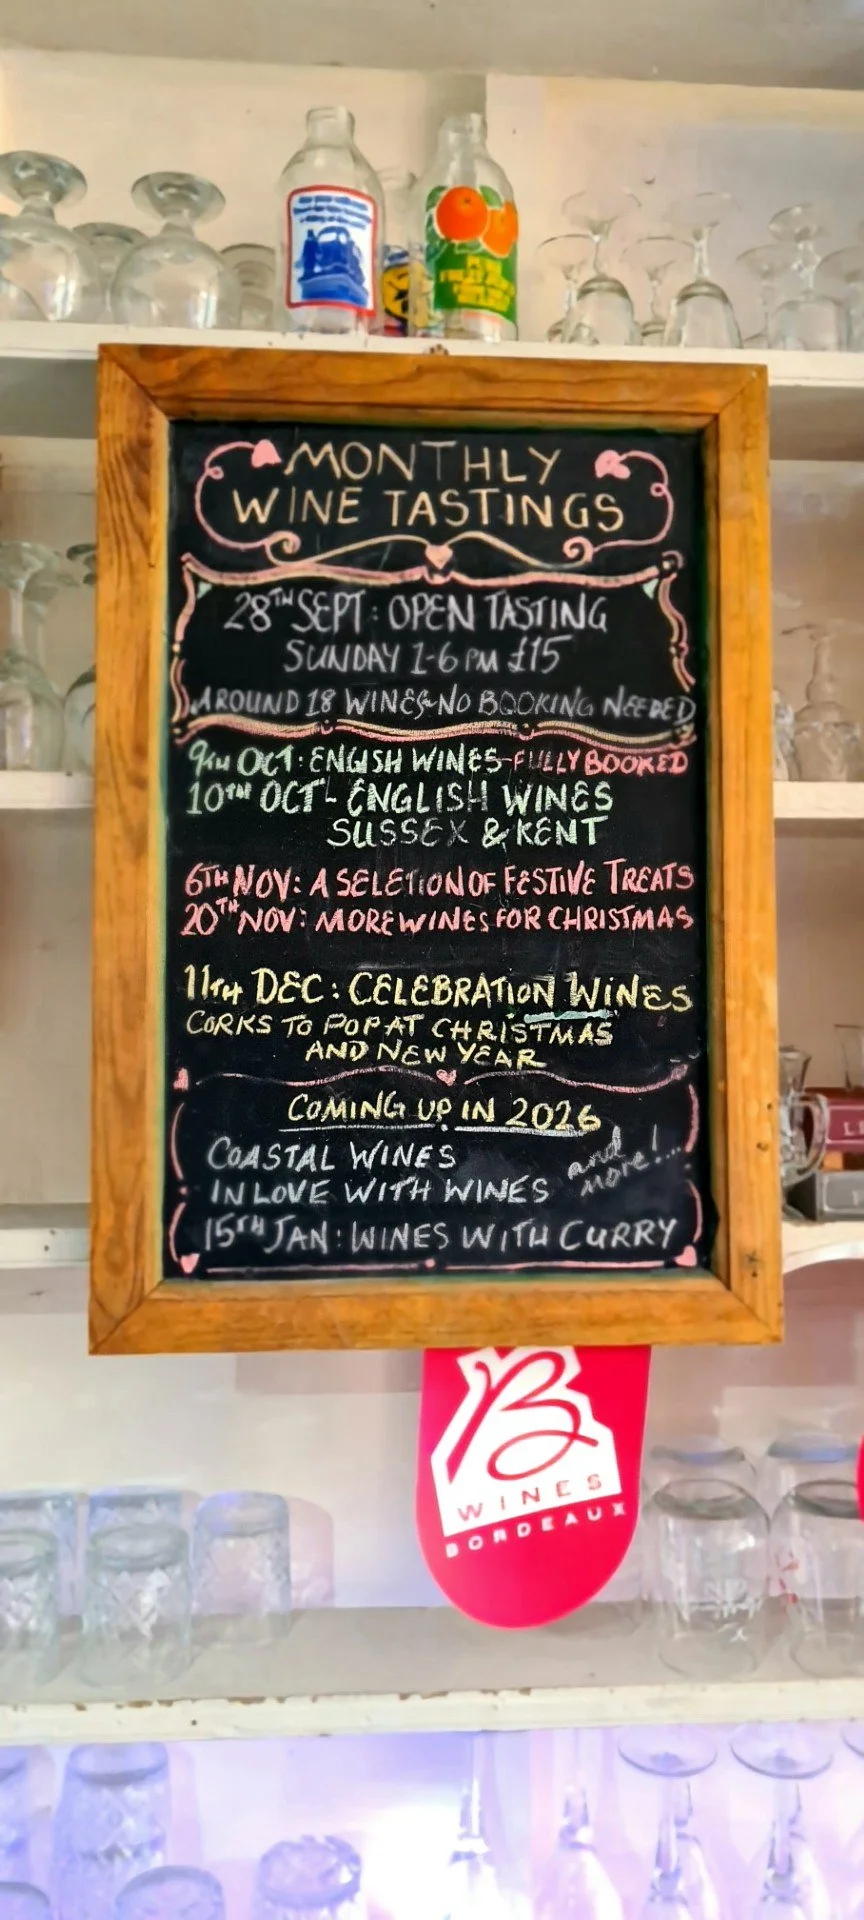 MONTHLY
WINE TASTINGS
28TH SEPT: OPEN TASTING
SUNDAY 1-6PM £15
AROUND 18 WINES-NO BOOKING NEEDED
9TH OCT: ENGLISH WINES-FULLY BOOKED
10TH OCT- ENGLISH WINES
SUSSEX & KENT
6TH NOV: A SELETION OF FESTIVE TREATS
20TH NOV: MORE WINES FOR CHRISTMAS
11TH DEC: CELEBRATION WINES
CORKS TO POP AT CHRISTMAS
AND NEW YEAR
COMING UP IN 2026
COASTAL WINES
and more!...
IN LOVE WITH WINES
15TH JAN: WINES WITH CURRY
B
WINES
BORDEAUX